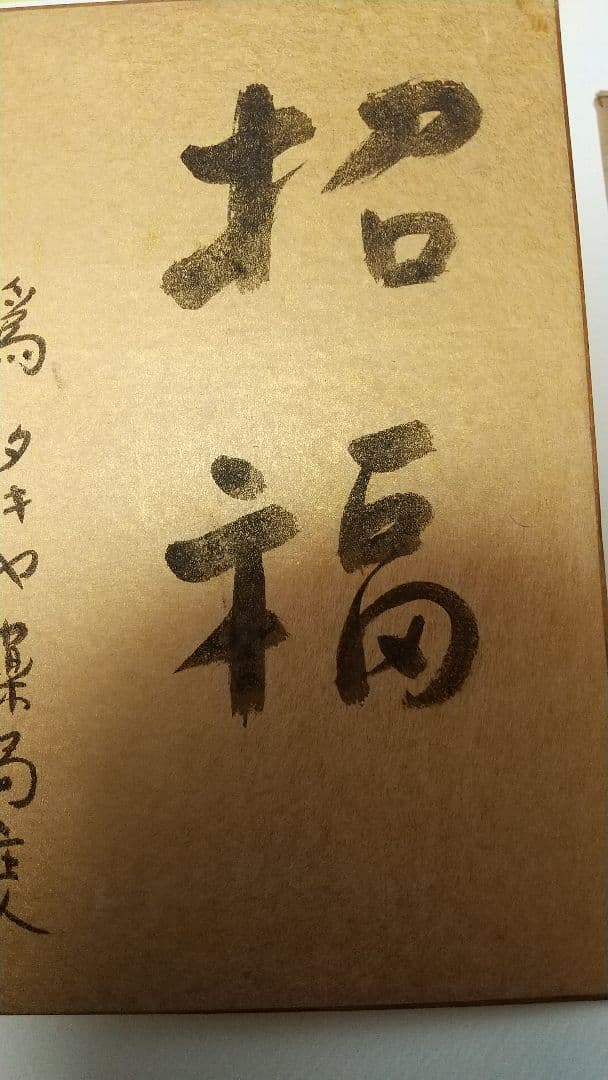 招福
為タキヤ薬局主人